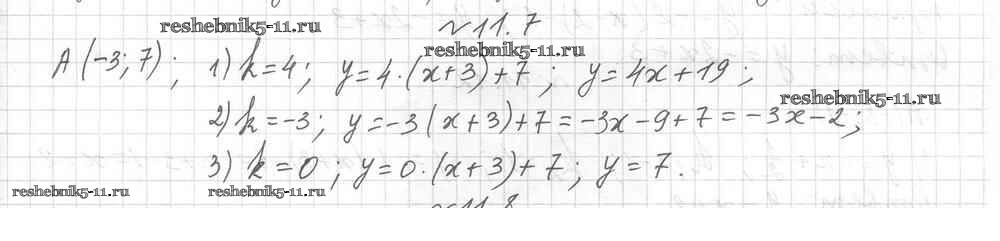 reshebnik5-11.ru
№11.7
reshebnik5-11.ru
A(-3; 7); 1) k=4; y=4·(x+3)+7; y=4x+19;
reshebnik5-11.ru
2) k=-3; y=-3(x+3)+7=-3x-9+7=-3x-2;
3) k=0; y=0·(x+3)+7; y=7.
reshebnik5-11.ru reshebnik5-11.ru
№11.8